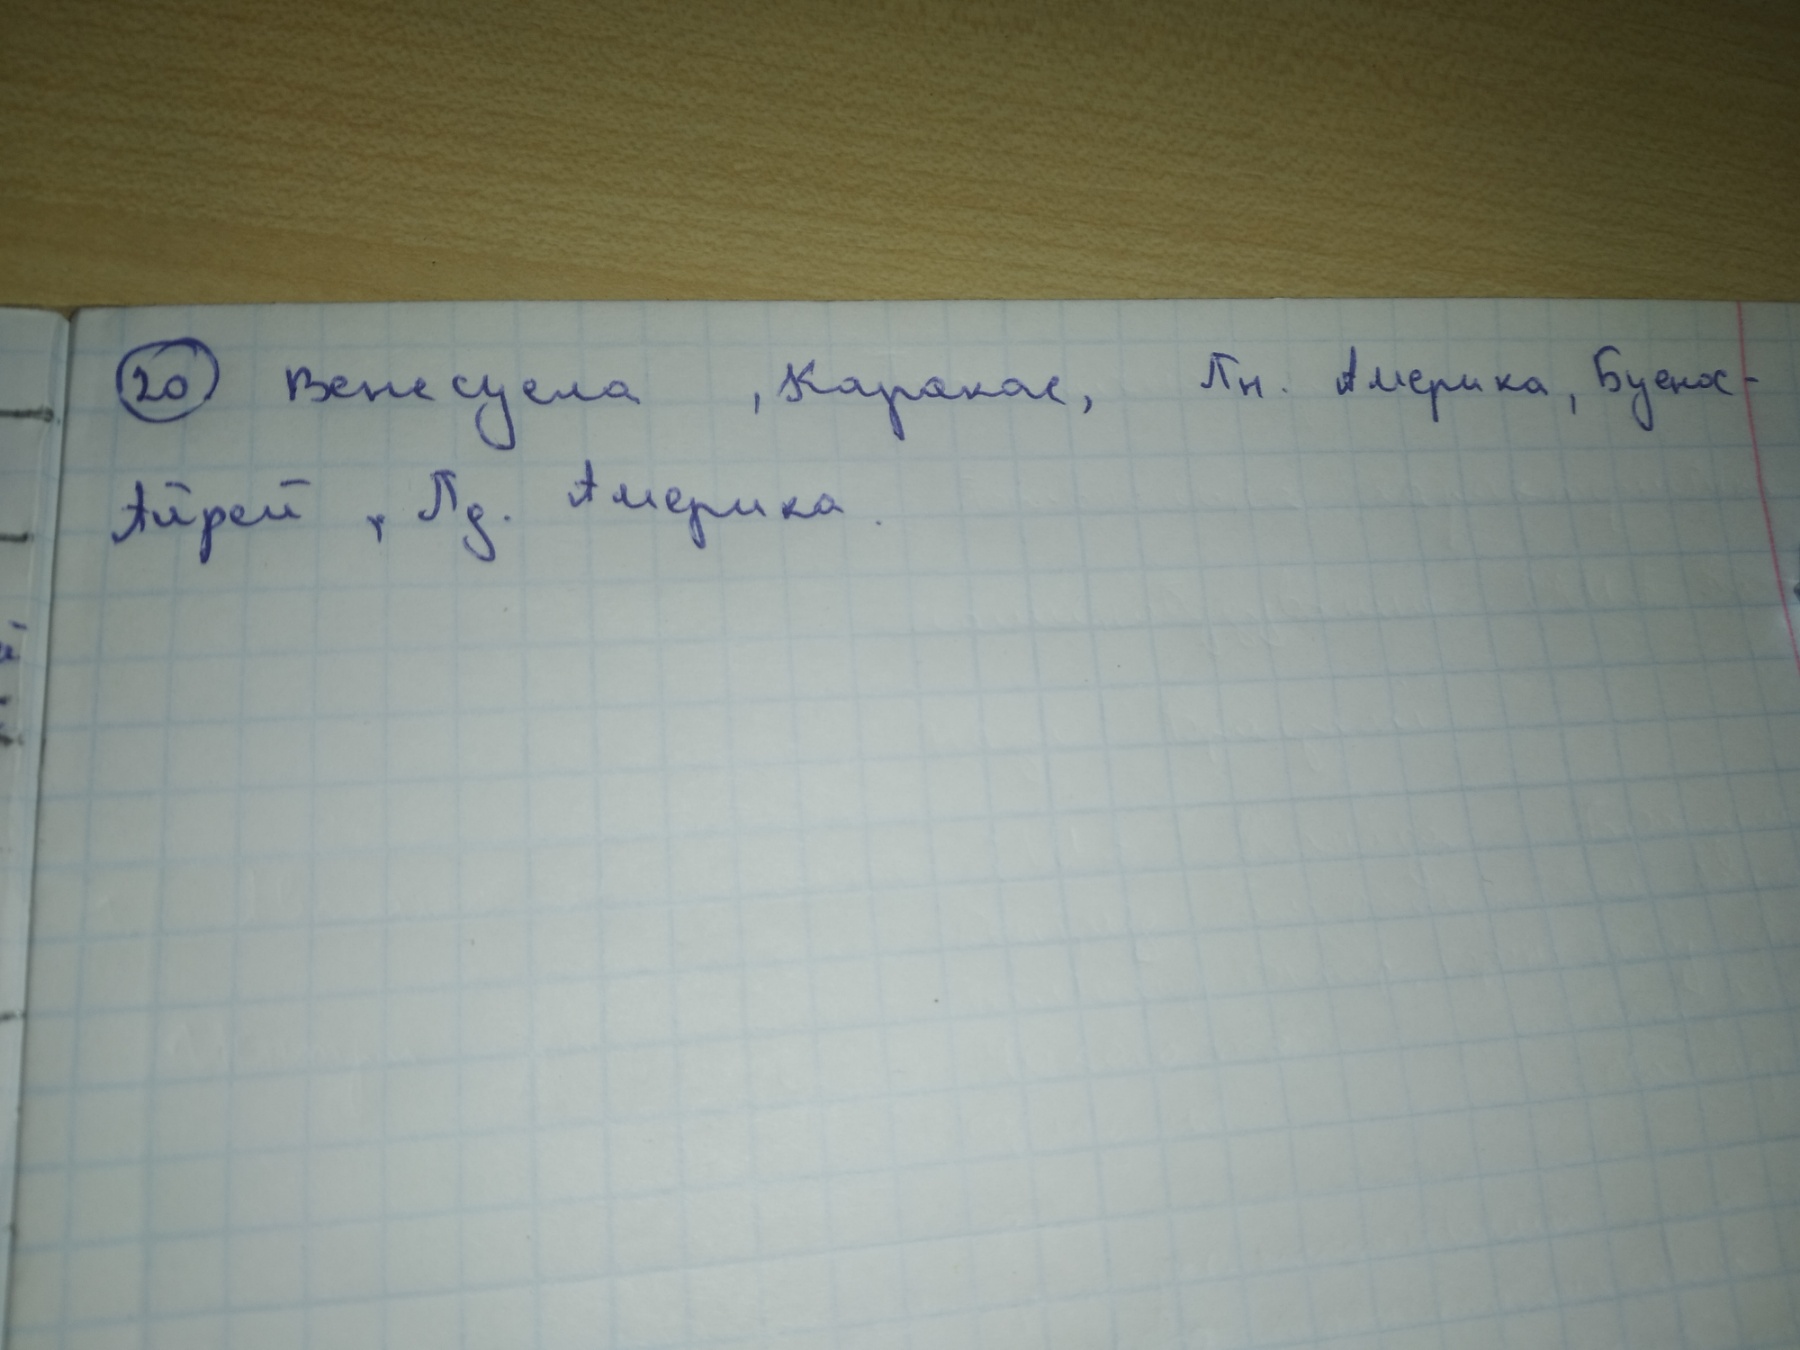 20 Венесуела , Каракас, Пн. Америка, Буенос-
Айрей , Пд. Америка.